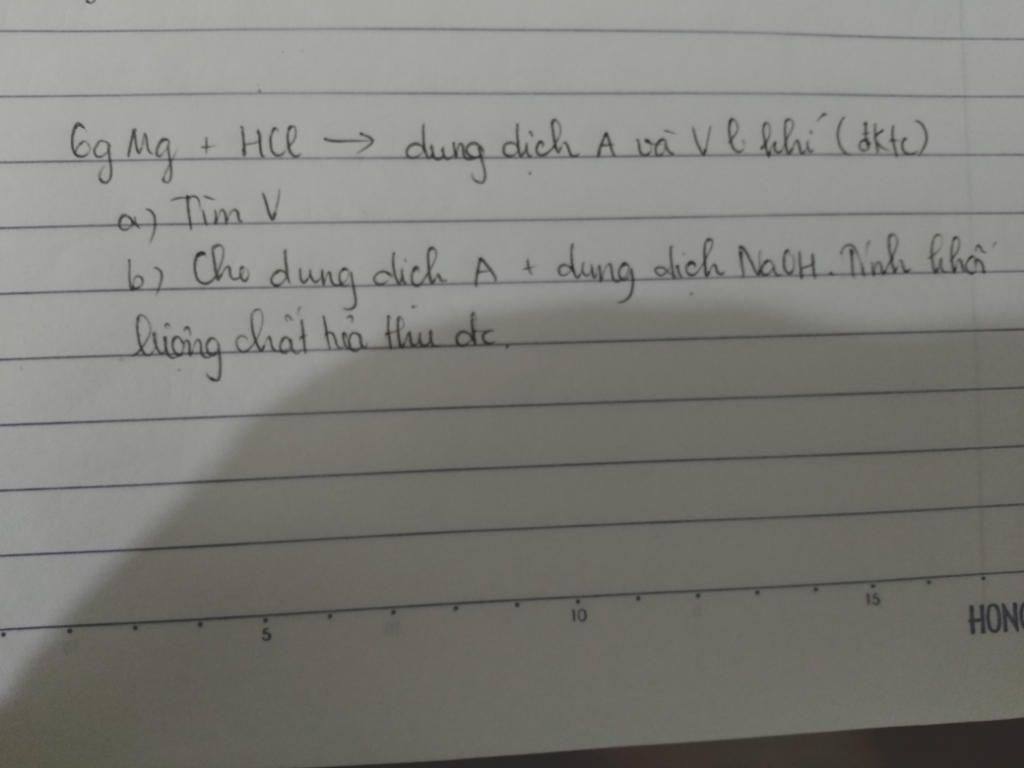 6g Mg + HCl → dung dịch A và V l khí (đktc)
a) Tìm V
b) Cho dung dịch A + dung dịch NaOH. Tính khối
lượng chất hòa thu đc.
5 10 15
HONG